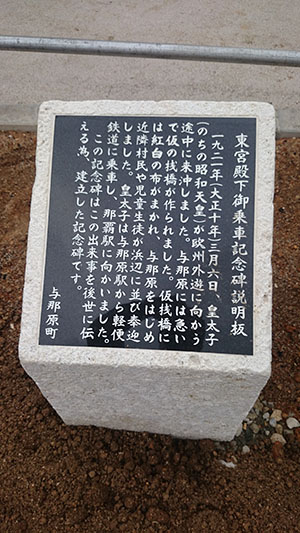 東宮殿下御乗車記念碑説明板
一九二一年(大正十年)三月六日、皇太子
(のちの昭和天皇)が欧州外遊に向かう
途中に来沖しました。与那原には急い
で仮の桟橋が作られました。仮桟橋に
は紅白の布がまかれ、与那原をはじめ
近隣村民や児童生徒が浜辺に並び奉迎
しました。皇太子は与那原駅から軽便
鉄道に乗車し、那覇駅に向かいました。
この記念碑はこの出来事を後世に伝
える為、建立した記念碑です。
与那原町